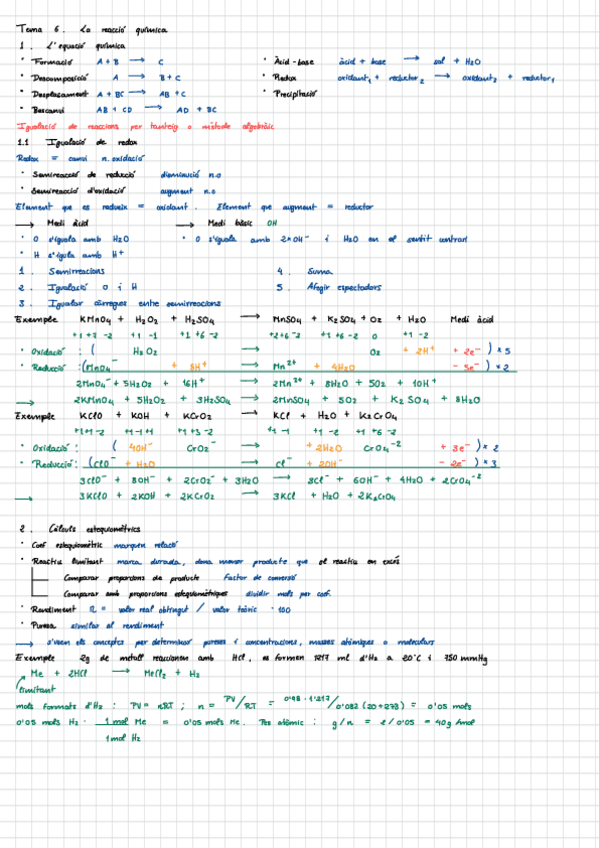 Tema 6. La reacció química
1. L'equació química
· Formació A + B → C
· Descomposició A → B + C
· Desplaçament A + BC → AB + C
· Bescanvi AB + CD → AD + BC
· Àcid-base àcid + base → sal + H2O
· Redox oxidant1 + reductor2 → oxidant2 + reductor1
· Precipitació
Igualació de reaccions per tanteig o mètode algebràic
1.1 Igualació de redox
Redox = canvi n. oxidació
· Semireacció de reducció disminució n.o
· Semireacció d'oxidació augment n.o
Element que es redueix = oxidant. Element que augment = reductor
→ Medi àcid → Medi bàsic OH
· O s'iguala amb H2O · O s'iguala amb 2×OH⁻ i H2O en el sentit contrari
· H s'iguala amb H⁺
1. Semirreacions 4. Suma
2. Igualació O i H 5. Afegir espectadors
3. Igualar càrregues entre semirreacions
Exemple KMnO4 + H2O2 + H2SO4 → MnSO4 + K2SO4 + O2 + H2O Medi àcid
+1 +7 -2 +1 -1 +1 +6 -2 +2 +6 -2 +1 +6 -2 0 +1 -2
· Oxidació: ( H2O2 → O2 + 2H⁺ + 2e⁻ ) × 5
· Reducció: (MnO4⁻ + 8H⁺ → Mn²⁺ + 4H2O - 5e⁻ ) × 2
2MnO4⁻ + 5H2O2 + 16H⁺ → 2Mn²⁺ + 8H2O + 5O2 + 10H⁺
→ 2KMnO4 + 5H2O2 + 3H2SO4 → 2MnSO4 + 5O2 + K2SO4 + 8H2O
Exemple KClO + KOH + KCrO2 → KCl + H2O + K2CrO4
+1 +1 -2 +1 -1 +1 +1 +3 -2 +1 -1 +1 -2 +1 +6 -2
· Oxidació: ( 4OH⁻ CrO2⁻ → + 2H2O CrO4⁻² + 3e⁻ ) × 2
· Reducció: (ClO⁻ + H2O → Cl⁻ + 2OH⁻ - 2e⁻ ) × 3
3ClO⁻ + 8OH⁻ + 2CrO2⁻ + 3H2O → 3Cl⁻ + 6OH⁻ + 4H2O + 2CrO4⁻²
→ 3KClO + 2KOH + 2KCrO2 → 3KCl + H2O + 2K2CrO4
2. Càlculs estequiomètrics
· Coef estequiomètric marquen relació
· Reactiu limitant marca durada, dona menor producte que el reactiu en excés
Comparar proporcions de producte Factor de conversió
Comparar amb proporcions estequiomètriques dividir mols per coef.
· Rendiment R = valor real obtingut / valor teòric · 100
· Puresa similar al rendiment
→ s'uneen els conceptes per determinar pureses i concentracions, masses atòmiques o moleculars
Exemple 2g de metall reaccionen amb HCl, es formen 1217 ml d'H2 a 20°C i 750 mmHg
Me + 2HCl → MeCl2 + H2
limitant
mols formats d'H2: PV = nRT; n = PV/RT = 0'98 · 1'217 / 0'082 (20+273) = 0'05 mols
0'05 mols H2 · 1 mol Me / 1 mol H2 = 0'05 mols Me. Pes atòmic: g/n = 2/0'05 = 40g/mol